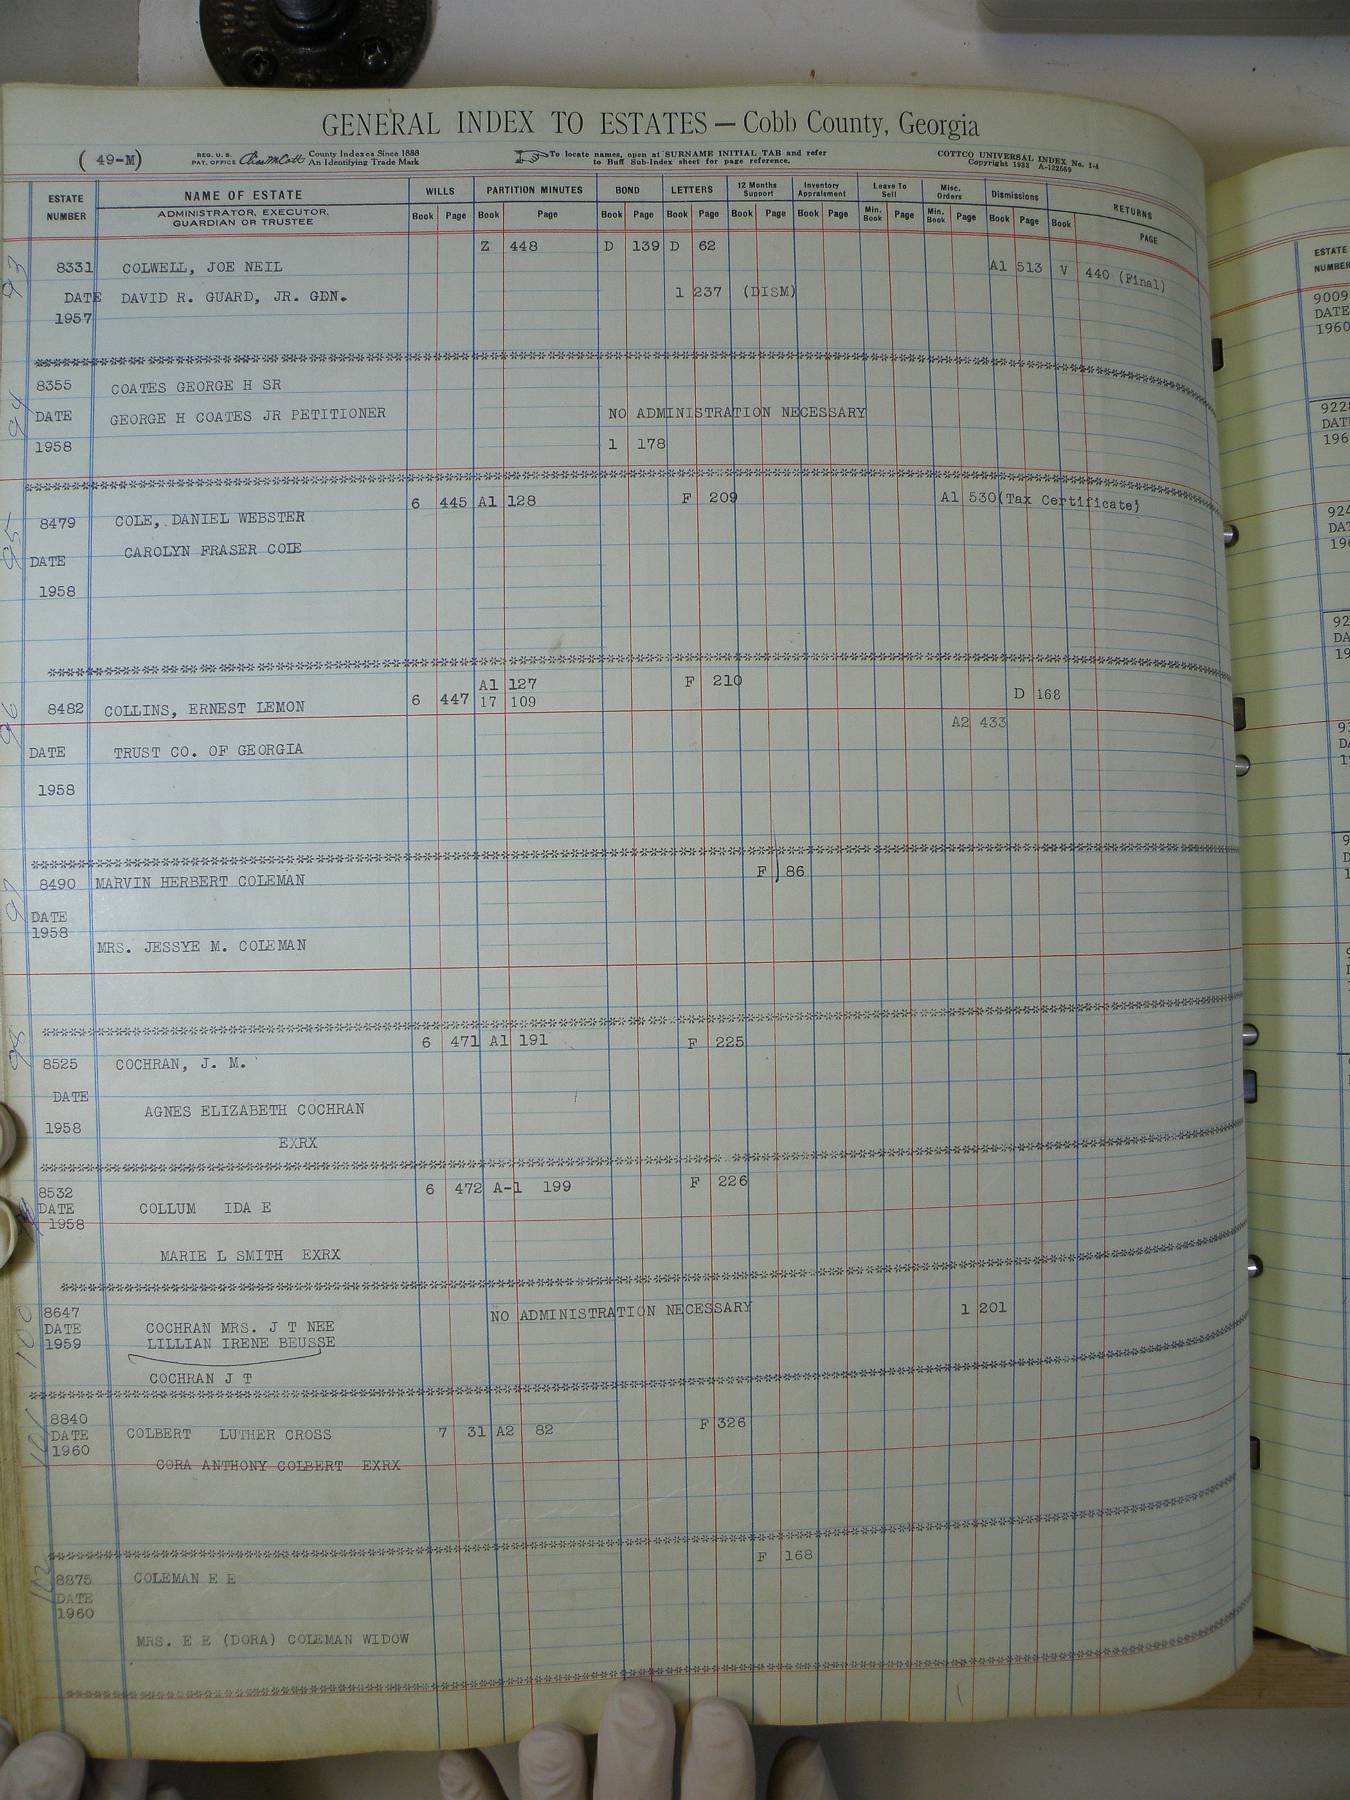 GENERAL INDEX TO ESTATES — Cobb County, Georgia
( 49-M)
REG. U. S. PAT. OFFICE
County Indexes Since 1888
An Identifying Trade Mark
To locate names, open at SURNAME INITIAL TAB and refer
to Buff Sub-Index sheet for page reference.
COTTCO UNIVERSAL INDEX No. 1-4
Copyright 1933 A-122669
ESTATE NUMBER NAME OF ESTATE WILLS PARTITION MINUTES BOND LETTERS 12 Months Support Inventory Appraisment Leave To Sell Misc. Orders Dismissions RETURNS
ADMINISTRATOR, EXECUTOR, GUARDIAN OR TRUSTEE Book Page Book Page Book Page Book Page Book Page Book Page Min. Book Page Min. Book Page Book Page Book PAGE
93
Z 448 D 139 D 62
8331 COLWELL, JOE NEIL A1 513 V 440 (Final)
DATE DAVID R. GUARD, JR. GDN. 1 237 (DISM)
1957
94
8355 COATES GEORGE H SR
DATE GEORGE H COATES JR PETITIONER NO ADMINISTRATION NECESSARY
1958 1 178
95
6 445 A1 128 F 209 A1 530(Tax Certificate)
8479 COLE, DANIEL WEBSTER
DATE CAROLYN FRASER COLE
1958
96
A1 127 F 210
8482 COLLINS, ERNEST LEMON 6 447 17 109 D 168
A2 433
DATE TRUST CO. OF GEORGIA
1958
97
8490 MARVIN HERBERT COLEMAN F 86
DATE
1958
MRS. JESSYE M. COLEMAN
98
6 471 A1 191 F 225
8525 COCHRAN, J. M.
DATE
AGNES ELIZABETH COCHRAN
1958
EXRX
8532 6 472 A-1 199 F 226
DATE COLLUM IDA E
1958
MARIE L SMITH EXRX
100
8647 NO ADMINISTRATION NECESSARY 1 201
DATE COCHRAN MRS. J T NEE
1959 LILLIAN IRENE BEUSSE
COCHRAN J T
101
8840 F 326
DATE COLBERT LUTHER CROSS 7 31 A2 82
1960
CORA ANTHONY COLBERT EXRX
102
F 168
8875 COLEMAN E E
DATE
1960
MRS. E E (DORA) COLEMAN WIDOW
ESTATE
NUMBER
9009
DATE
1960